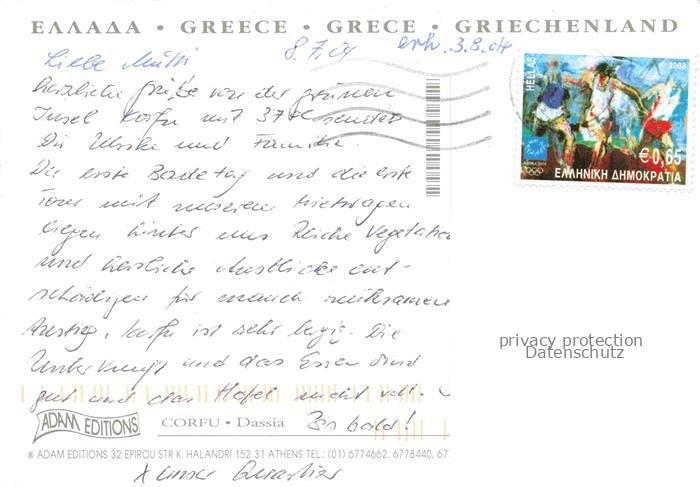 ΕΛΛΑΔΑ • GREECE • GRECE • GRIECHENLAND
Liebe Mutti 8.7.04 erh. 3.8.04
herzliche Grüße von der grünen
Insel Korfu mit 37°C sendet
Dir Ulrike und Familie.
Der erste Badetag und die erste
Tour mit unserem Mietwagen
liegen hinter uns. Reiche Vegetation
und herrliche Ausblicke ent-
schädigen für manch mühsamen
Anstieg. Korfu ist sehr bergig. Die
Unterkunft und das Essen sind
gut und das Hotel nicht voll.
Bis bald!
ADAM EDITIONS
CORFU • Dassia
® ADAM EDITIONS 32 EPIROU STR K. HALANDRI 152 31 ATHENS TEL.: (01) 6774662, 6778440, 67
x unser Quartier
HELLAS
2003
ATHENS 2004
€ 0,65
ΕΛΛΗΝΙΚΗ ΔΗΜΟΚΡΑΤΙΑ
privacy protection
Datenschutz